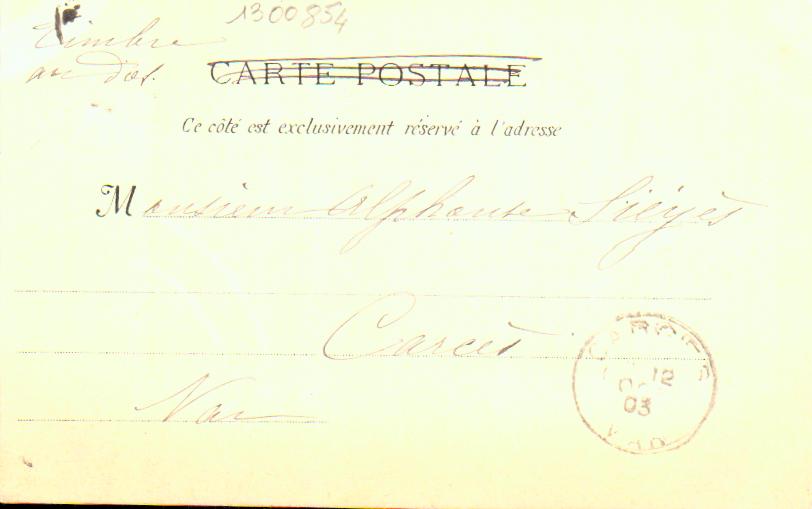 1300854
Timbre
au dos.
CARTE POSTALE
Ce côté est exclusivement réservé à l'adresse
Monsieur Alphonse Sieyès
Carcès
Var
CARCES
12
03
VAR